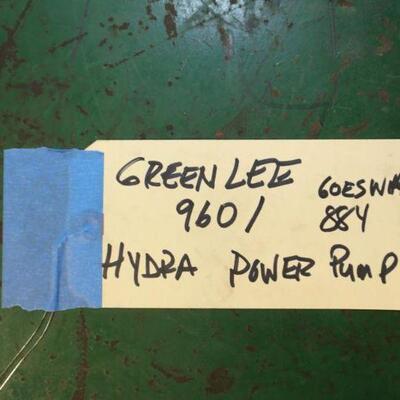 GREENLEE GOES W/
960 / 884
HYDRA POWER PUMP